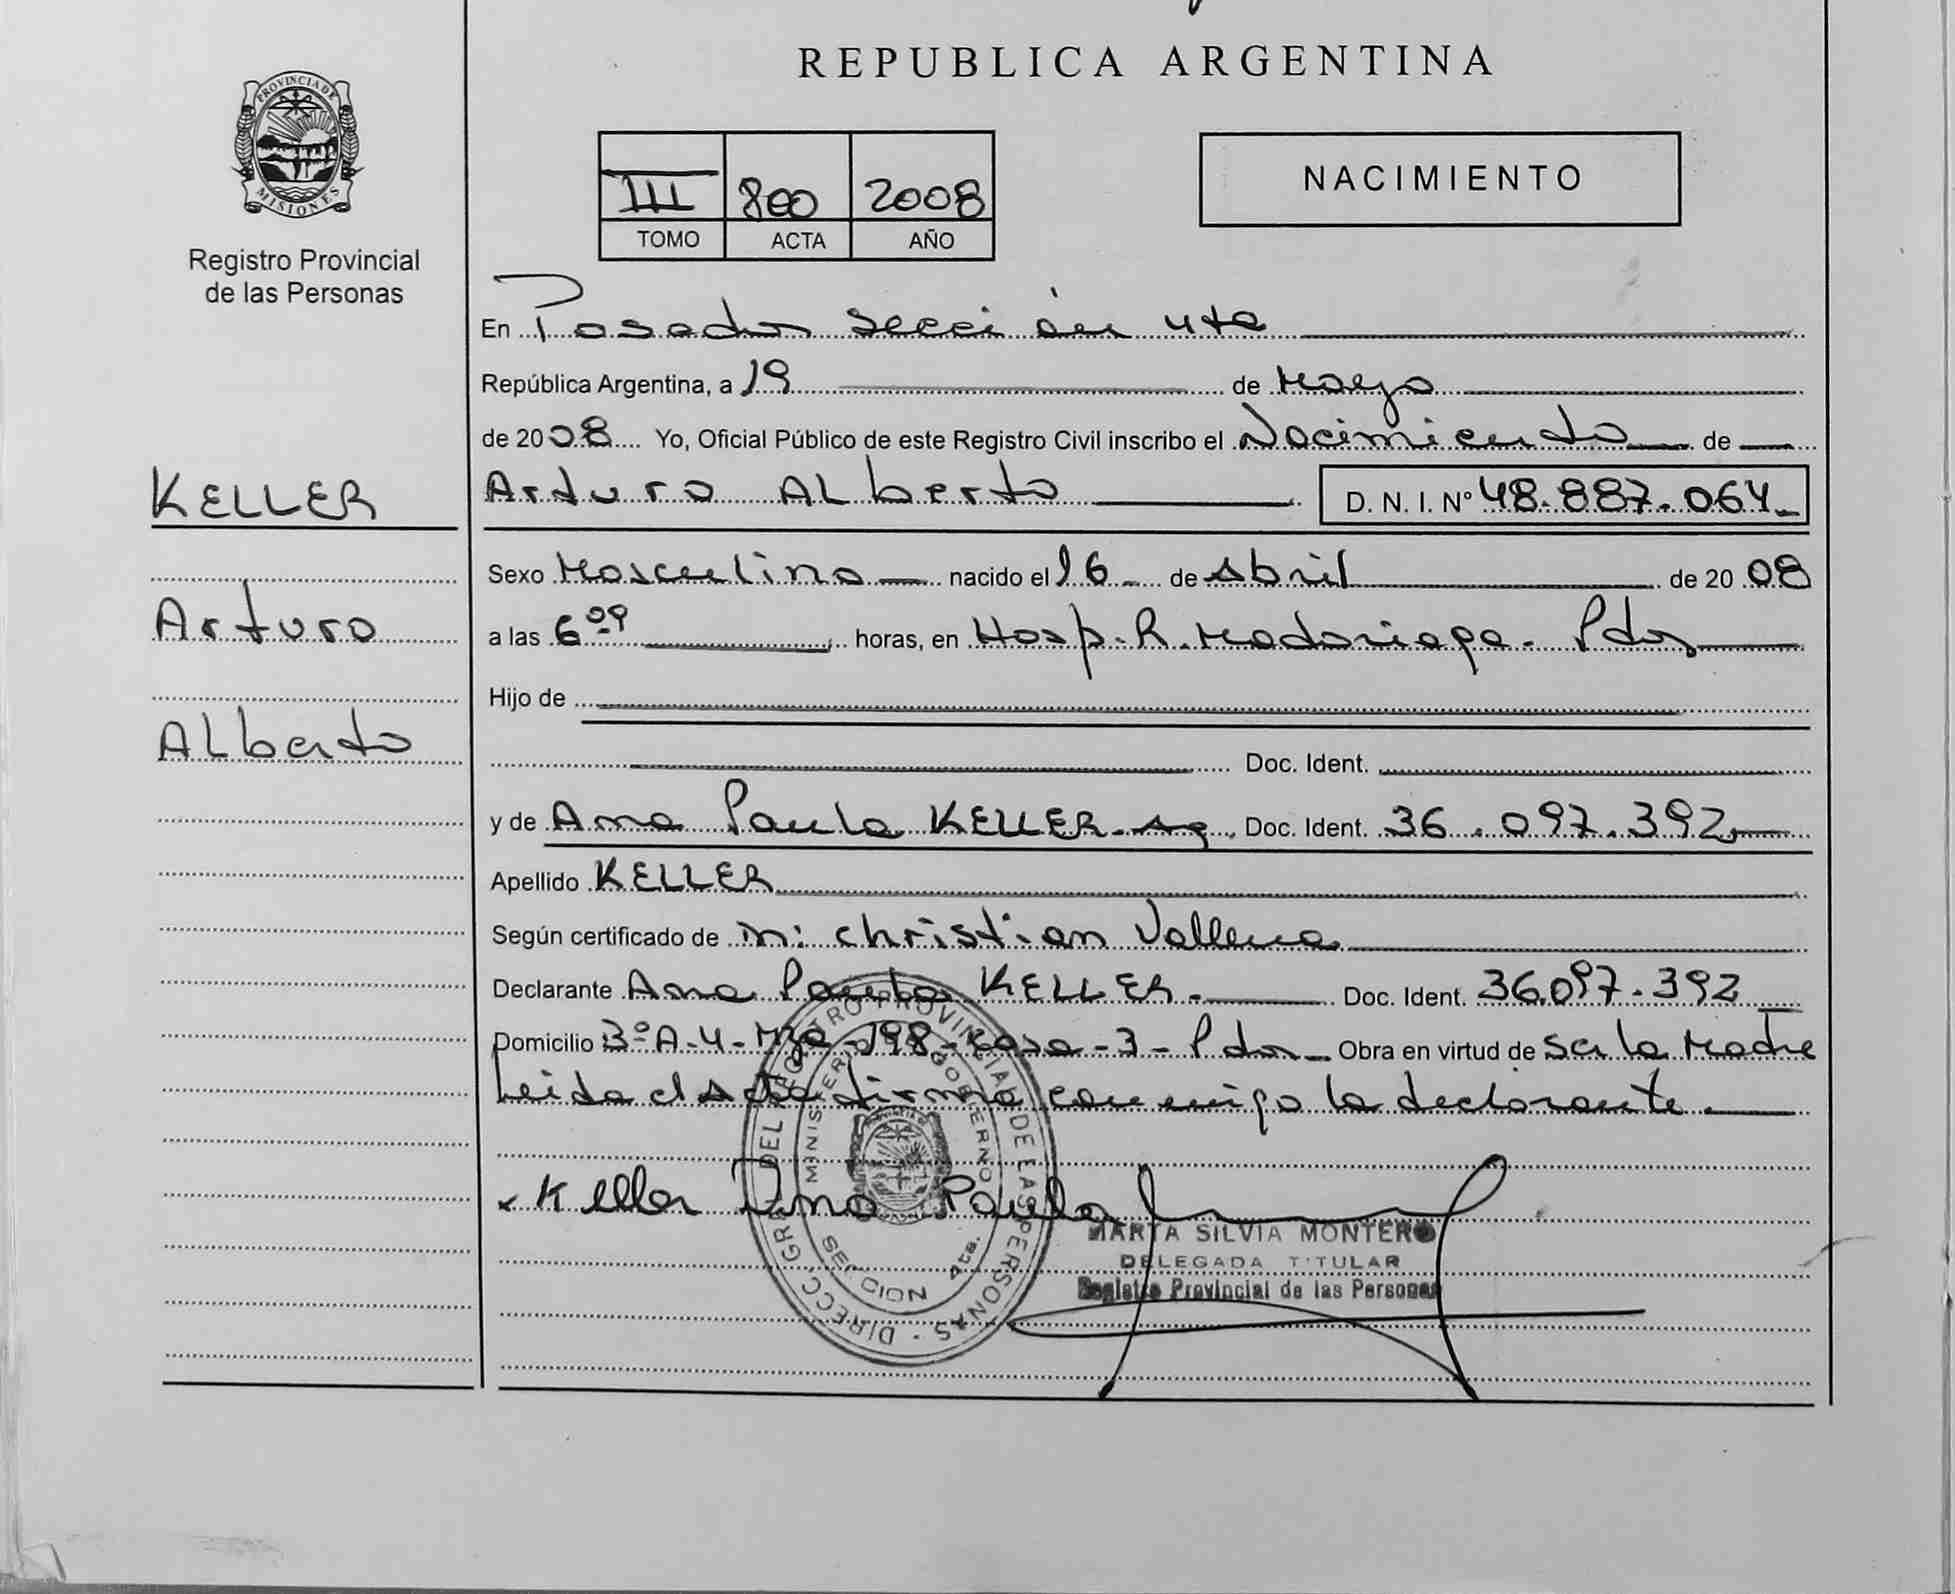 REPUBLICA ARGENTINA
PROVINCIA DE
MISIONES
Registro Provincial
de las Personas
III 800 2008
TOMO ACTA AÑO
NACIMIENTO
En Posadas sección 4ta
República Argentina, a 19 de Mayo
de 2008 Yo, Oficial Público de este Registro Civil inscribo el Nacimiento de
Arturo ALberto D. N. I. Nº 48.887.064
KELLER
Arturo
ALberto
Sexo Masculino nacido el 16 de Abril de 20 08
a las 6 09 horas, en Hosp. R. Madariaga. Pdas
Hijo de
Doc. Ident.
y de Ana Paula KELLER Arg. Doc. Ident. 36.097.392
Apellido KELLER
Según certificado de m: christian Vallena
Declarante Ana Paula KELLER. Doc. Ident. 36.097.392
Domicilio 3º A-4-Mza-198-Casa-3-Pdas Obra en virtud de Ser la Madre
Leida el Acta firma conmigo la declarante.
Keller Ana Paula
DIRECC. GRAL DEL REGISTRO PROVINCIAL DE LAS PERSONAS
MINISTERIO GOBIERNO
SECCION 4ta.
MARTA SILVIA MONTERO
DELEGADA TITULAR
Registro Provincial de las Personas